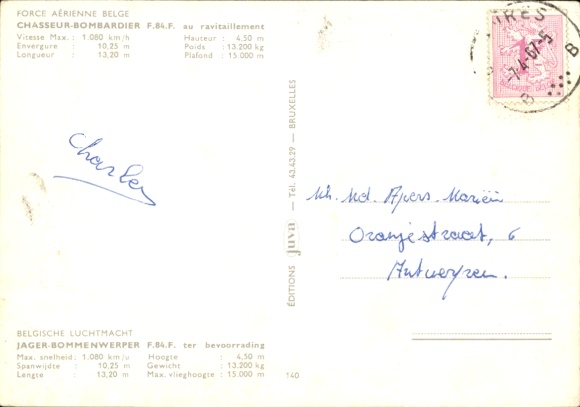 FORCE AÉRIENNE BELGE
CHASSEUR-BOMBARDIER F.84.F. au ravitaillement
Vitesse Max. : 1.080 km/h Hauteur : 4,50 m
Envergure : 10,25 m Poids : 13.200 kg
Longueur : 13,20 m Plafond : 15.000 m
Charles
BELGISCHE LUCHTMACHT
JAGER-BOMMENWERPER F.84.F. ter bevoorrading
Max. snelheid : 1.080 km/u Hoogte : 4,50 m
Spanwijdte : 10,25 m Gewicht : 13.200 kg
Lengte : 13,20 m Max. vlieghoogte : 15.000 m
140
ÉDITIONS juva — Tél. 43.43.29 — BRUXELLES
B
B
Mh. Md. Apers-Mariën
Oranjestraat, 6
Antwerpen.